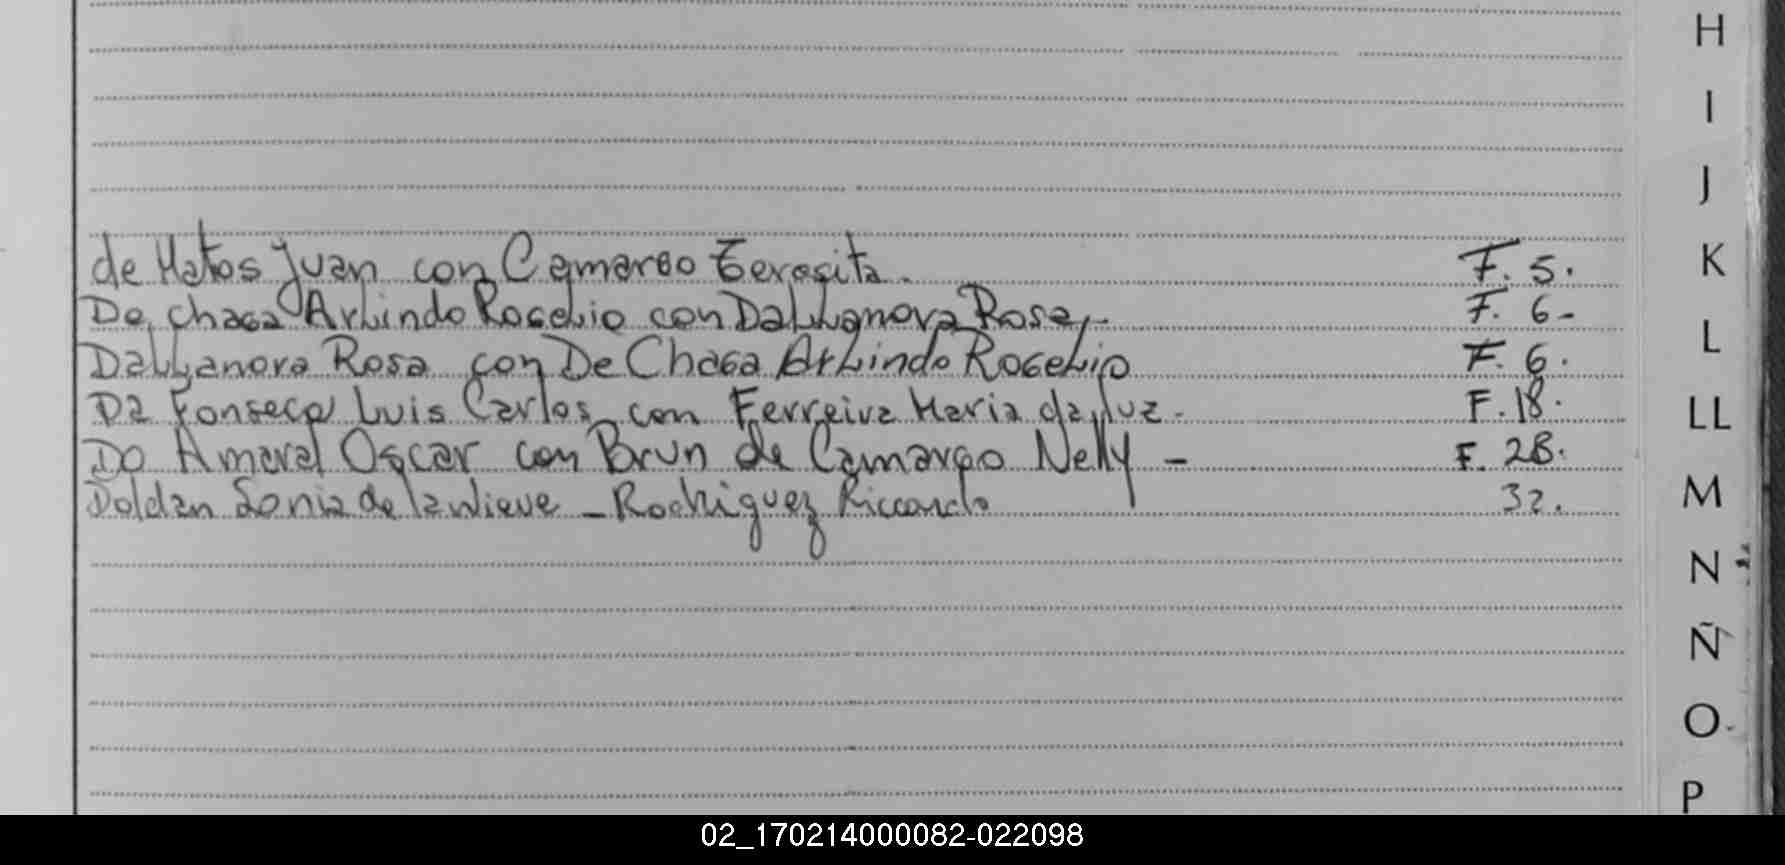 H
I
J
de Matos Juan con Camargo Teresita. F. 5.
K
De Chaga Arlindo Rogelio con Dallanora Rosa,- F. 6-
L
Dallanora Rosa con De Chaga Arlindo Rogelio F. 6.
Da Fonseca Luis Carlos con Ferreira Maria da luz. F. 18.
LL
Do Amaral Oscar con Brun de Camargo Nelly - F. 28.
Doldan Sonia de la Nieve - Rodriguez Riccardo 32.
M
N
Ñ
O
P
02_170214000082-022098